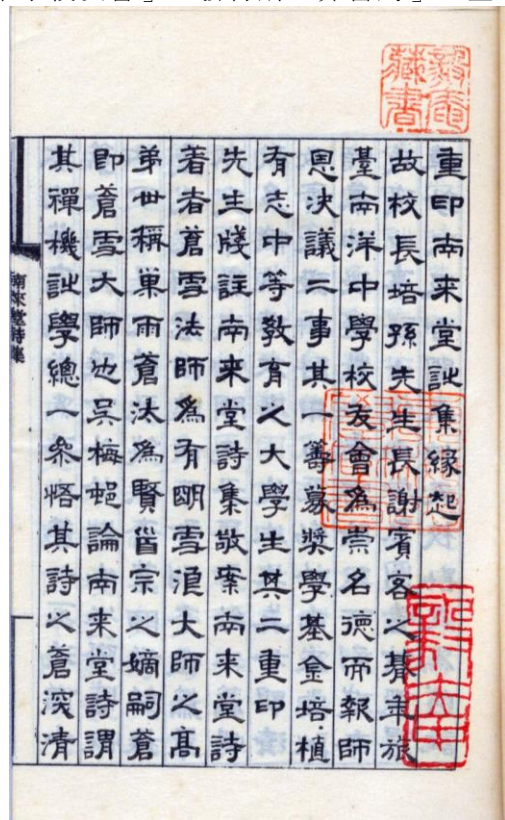 毅庵藏書
重印南来堂𧥳集緣起
故校長培孫先生長謝賓客之朞年旅
臺南洋中學校友會為崇名德而報師
恩決議二事其一籌募奬學基金培植
有志中等敎育之大學生其二重印
先生牋註南来堂詩集敬案南来堂詩
著者蒼雪法師為有朙雪浪大師之高
弟世稱巢雨蒼汰為賢首宗之嫡嗣蒼
即蒼雪大師也吳梅邨論南来堂詩謂
其禪機𧥳學總一叅悟其詩之蒼深清
南來堂詩集